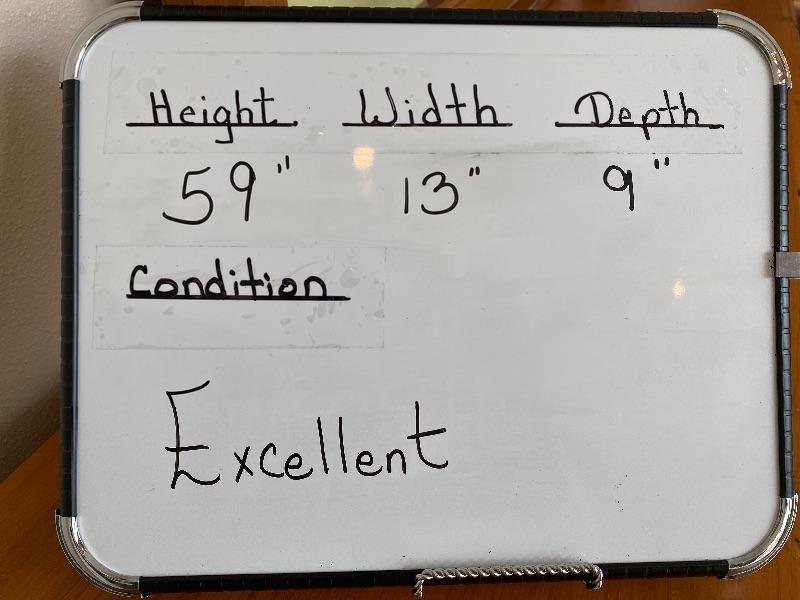 Height Width Depth
59" 13" 9"
Condition
Excellent